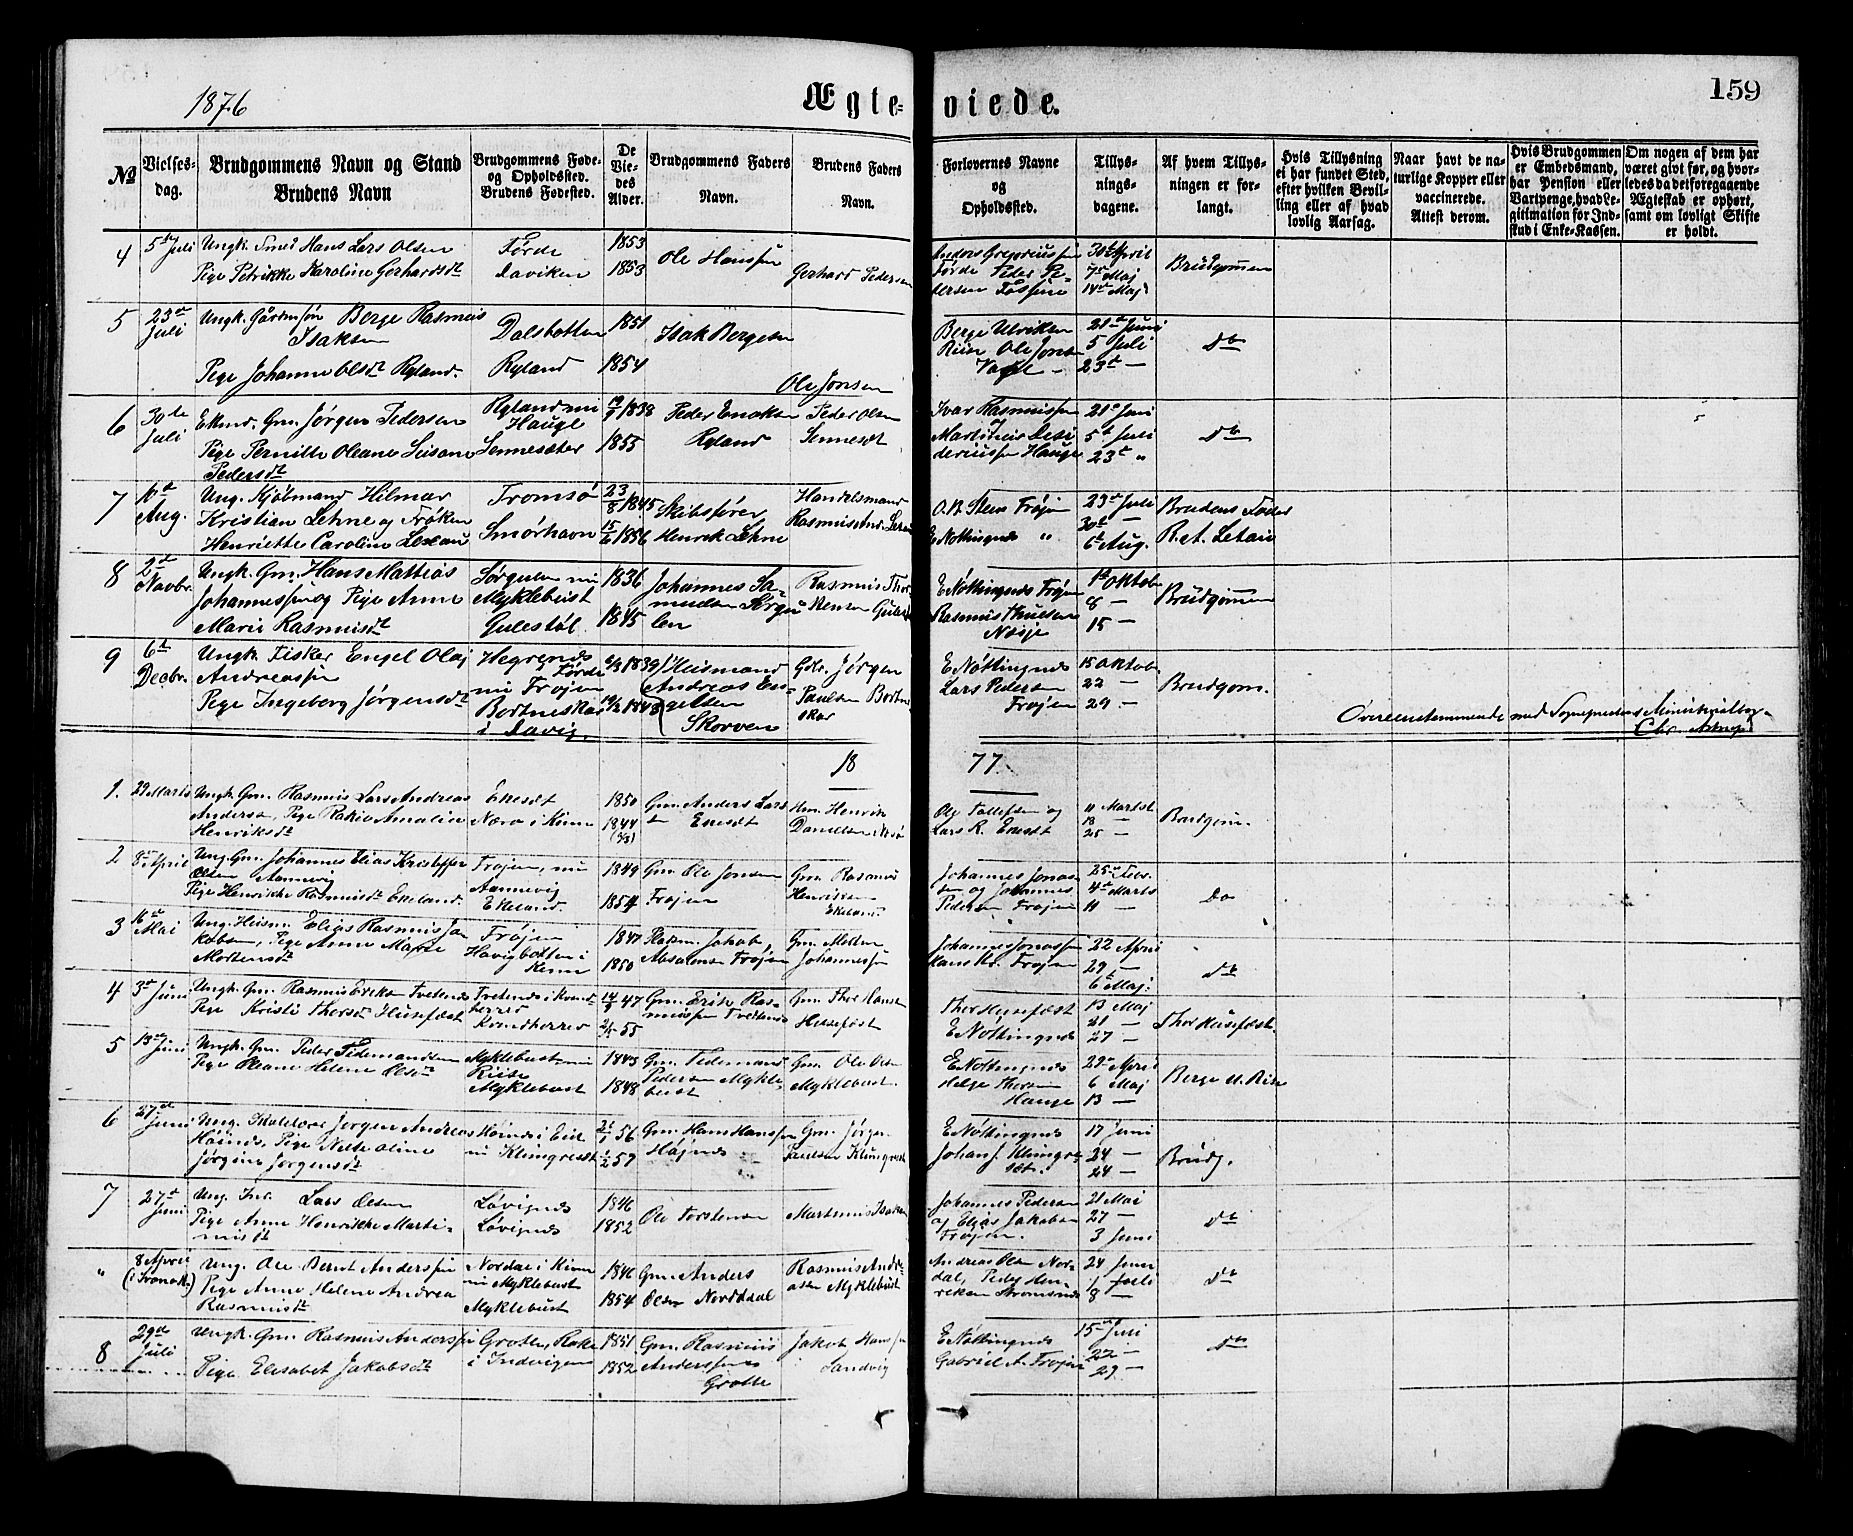 1876
Ægte=
viede.
159
№
Vielses-
dag.
Brudgommens Navn og Stand
Brudens Navn
Brudgommens Føde-
og Opholdssted.
Brudens Fødested.
De
Vie-
des
Alder.
Brudgommens Faders
Navn.
Brudens Faders
Navn.
Forlovernes Navne
og
Opholdssted.
Tillys-
nings-
dagene.
Af hvem Tillys-
ningen er for-
langt.
Hvis Tillysning
ei har fundet Sted,
efter hvilken Bevil-
ling eller af hvad
lovlig Aarsag.
Naar havt de na-
turlige Kopper eller
vaccinerede.
Attest derom.
Hvis Brudgommen
er Embedsmand,
har Pension eller
Vartpenge, hvad Le-
gitimation for Ind-
skud i Enke-Kassen.
Om nogen af dem har
været givt før, og hvor-
ledes da det foregaaende
Ægteskab er ophørt,
samt om lovligt Skifte
er holdt.
4
5te Juli
Ungk. Hans Lars Olsen
Pige Petrikke Karoline Gerhardsdt
Førde
Daviken
1853
1853
Ole Hanssen
Gerhard Pedersen
Anders Gregoriussen
Førde Peder Pe-
dersen
30te April
7de Maj
14de Maj
Brudgommen
5
23de
Juli
Ungk. Gårdmsøn Berge Rasmus
Isaksen
Pige Johanne Olsdt Ryland.
Dalsbotten
Ryland
1851
1854
Isak Bergesen
Ole Jonsen
Berge Ulriksen
Riise Ole Jonsen
21de Juni
5 Juli
23de —
do
6
30te
Juli
Ekmd. Gm. Jørgen Pedersen
Pige Pernille Oleane Susanne
Pedersdt
Ryland nu
Hauge
Sennesæter
1838
1855
Peder Enoksen
Ryland
Peder Olsen
Sennesæt
Ivar Rasmussen
og
Martinus Desi-
deriussen Hauge
21de Juni
5te Juli
23de "
do
7
10de
Aug.
Ung. Kjøbmand Hilmar
Kristian Lehne og Frøken
Henriette Caroline Lexau
Tromsø
Smørhavn
23/8 1845
15/6 1856
Skibsfører
Henrik Lehne
Handelsmand
Rasmus And. Lexau
O. N. Steen Frøjen
E Nøttingnes "
23de Juli
30te —
6te Aug.
Brudens Fader
8
2de
Novbr.
Ungk. Gm. Hans Mattias
Johannessen og Pige Anne
Marie Rasmusdt
Sørgulen nu
Myklebust
Gulestøl
1836
1845
Johannes Sa-
muelsen Sørgu-
len
Rasmus Thor-
E Nøttingnes Frøjen
Rasmus Knudsen
1ste Oktobr
8 —
15 —
Brudgommen
9
6te
Decbr.
Ungk. Fisker Engel Olaj
Andreassen
Pige Ingeborg Jørgensdt
Hegrenes
Førde
nu Frøjen
Bortneskar
i Davig.
1839
1848
Husmand
Andreas En-
gelsen
Skorven
Gdr. Jørgen
Paulsen Bortne-
skar
E Nøttingnes
Lars Pedersen
Frøjen
15 Oktobr.
22 —
29 —
Brudgom.
Overeenstemmende med Sognepræstens Ministerialbog
18
77.
1.
29 Marts
Ungk. Gm. Rasmus Lars Andreas
Anderse, Pige Rakie Amalie
Henriksdt
Ekesæt
Nærø i Kinn
1850
1844
Gm. Anders Lars-
en Ekesæt
Hm. Henrik
Danielsen
Ole Tollefsen og
Lars R. Ekesæt
11 Marts
18 —
25 —
Brudgom.
2
8de April
Ung. Gm. Johannes Elias Kristoffer
Olsen Aannevig
Pige Henrikke Rasmusdt Ekeland.
Frøjen, nu
Aannevig
Ekeland.
1849
1854
Gm. Ole Jonsen
Frøjen
Gm. Rasmus
Henriksen
Ekeland.
Johannes Jonas-
sen og Johannes
Pedersen Frøjen
25de Febr.
4de Marts
11 —
Do
3
16de
Mai
Ung. Husm. Elias Rasmus Ja-
kobsen, Pige Anne Marie
Mortensdt
Frøjen
Havigbotten i
Kinn
1847
1850
Jakob
Absalonsen Frøjen
Gm. Morten
Johannessen
Johannes Jonassen
Hans Kr. Frøjen
22 April
29 —
6te Maj.
do
4
3de Juni
Ungk. Gm. Rasmus Eriksen Tveitenes
Pige Kristi Thorsdt Husefæst
Tveitenes i Kvind-
herred
Kvindherred
47
55
Gm. Erik Ras-
mussen Tveitenes
Gm. Thor Hansen
Husefæst
Thor Husefæst
E Nøttingnes
13 Maj
21 —
27 —
Thor Husefæst.
5
13de Juni
Ungk. Gm. Peder Tidemandsen
Pige Oleane Helene Olsdt
Myklebust nu
Riise
Myklebust
1843
1848
Gm. Tidemand
Pedersen Mykle-
bust
Gm. Ole Olsen
Myklebust.
E Nøttingnes
Helge Thorsen
Hauge
29de April
6 Maj
13 —
Berge U. Riise
6
27de
Juni
Ung. Skolelærer Jørgen Andreas
Høines, Pige Nille Oline
Jørgine Jørgensdt
56
57
Gm. Hans Hanssen
Højnes
Gm. Jørgen
Paulsen
E Nøttingnes
17 Juni
24 —
24 —
Brudg.
7
27de
Juni
Ung. Lars Olsen
Pige Anne Henrikke Marti-
nusdt
Løvignes
Løvignes
1846
1852
Ole Torstensen
Martinus Isaksen
Johannes Pedersen
og Elias Jakobsen
Frøjen.
21 Mai
27 —
3 Juni
do
"
8 April
Ung. Ole Bernt Anderssen
Pige Anne Helene Andrea
Rasmusdt
Nordal i Kinn
nu Myklebust
Myklebust
1846
1854
Gm. Anders
Olsen Norddal
Rasmus Andre-
asen Myklebust
Andreas Olsen Nor-
dal, Peder Hen-
riksen Strømsnes
24 Juni
1 Juli
8 —
do
8
29de
Juli
Ungk. Gm. Rasmus Anderssen
Pige Elisabet Jakobsdt
Grotle,
i Indvigen
1851
1852
Gm. Rasmus
Anderssen
Grotle
Jakob Hanssen
Sandvig
E Nøttingnes
Gabriel A. Frøjen
15de Juli
22 —
29 —
do